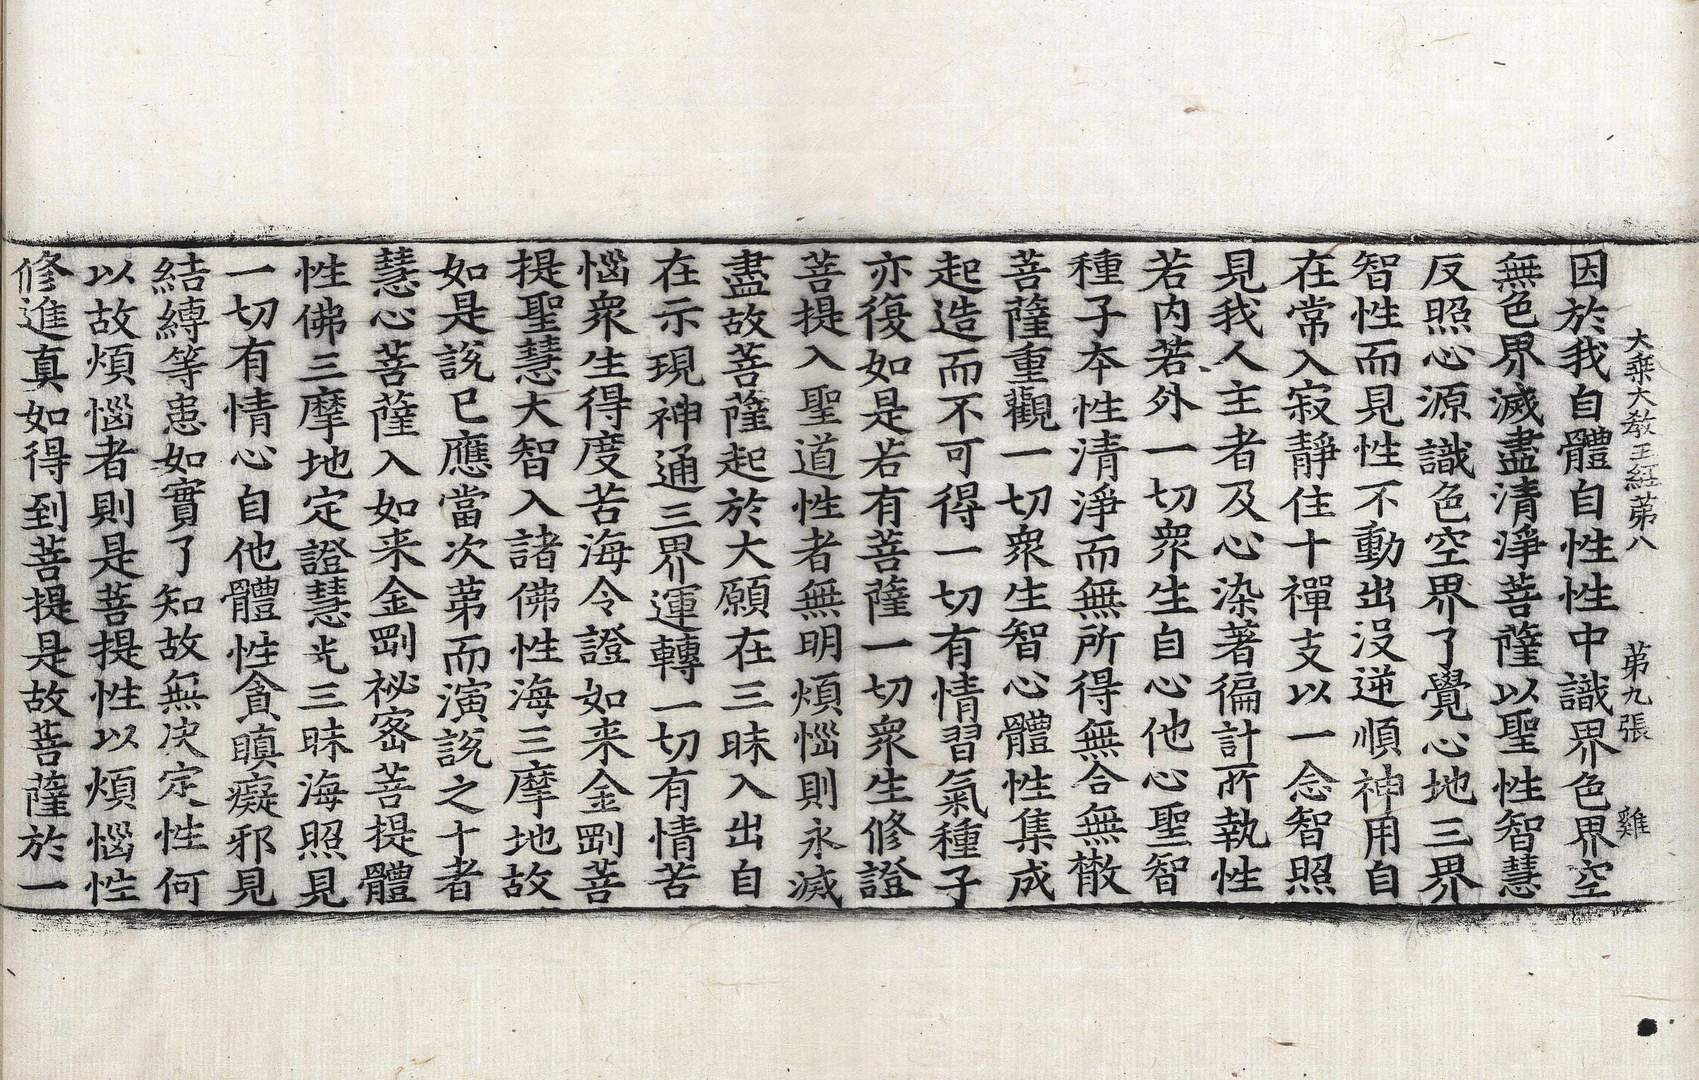 大乘大教王経苐八 苐九張 雞
因於我自體自性性中識界色界空
無色界滅盡清淨菩薩以聖性智慧
反照心源識色空界了覺心地三界
智性而見性不動出没逆順神用自
在常入寂靜住十禪支以一念智照
見我人主者及心染著徧計所執性
若内若外一切衆生自心他心聖智
種子夲性清淨而無所得無合無散
菩薩重觀一切衆生智心體性集成
起造而不可得一切有情習氣種子
亦復如是若有菩薩一切衆生修證
菩提入聖道性者無明煩惱則永滅
盡故菩薩起於大願在三昧入出自
在示現神通三界運轉一切有情苦
惱衆生得度苦海令證如来金剛菩
提聖慧大智入諸佛性海三摩地故
如是說已應當次苐而演說之十者
慧心菩薩入如来金剛祕密菩提體
性佛三摩地定證慧光三昧海照見
一切有情心自他體性貪瞋癡邪見
結縛等患如實了知故無决定性何
以故煩惱者則是菩提性以煩惱性
修進真如得到菩提是故菩薩於一